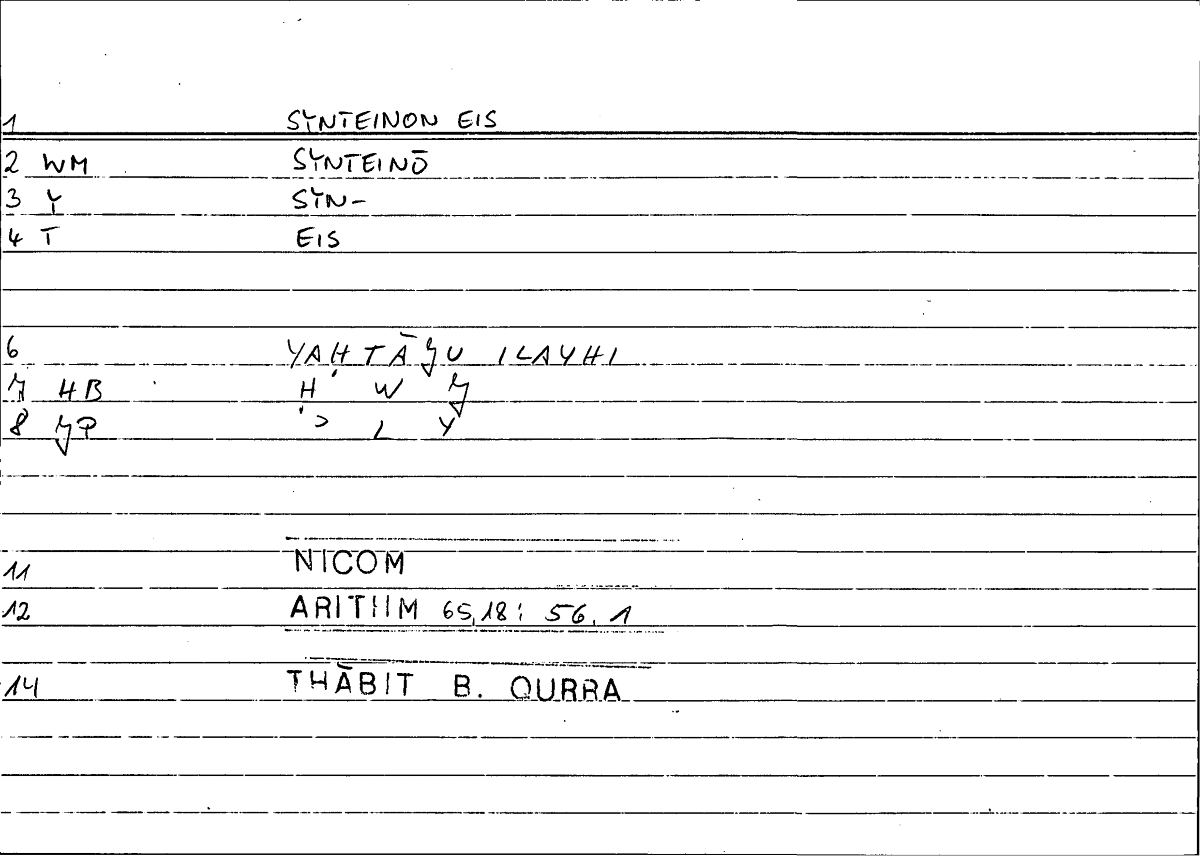 1 SYNTEINON EIS
2 WM SYNTEINŌ
3 Y SYN-
4 T EIS
6 YAḤTĀǦU ILAYHI
7 HB Ḥ W Ǧ
8 ʾ L Y
11 NICOM
12 ARITHM 65,18; 56,1
14 THĀBIT B. QURRA